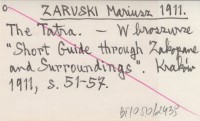 ZARUSKI Mariusz 1911.
The Tatra. — W broszurze
"Short Guide through Zakopane
and Surroundings". Kraków
1911, s. 51-57.